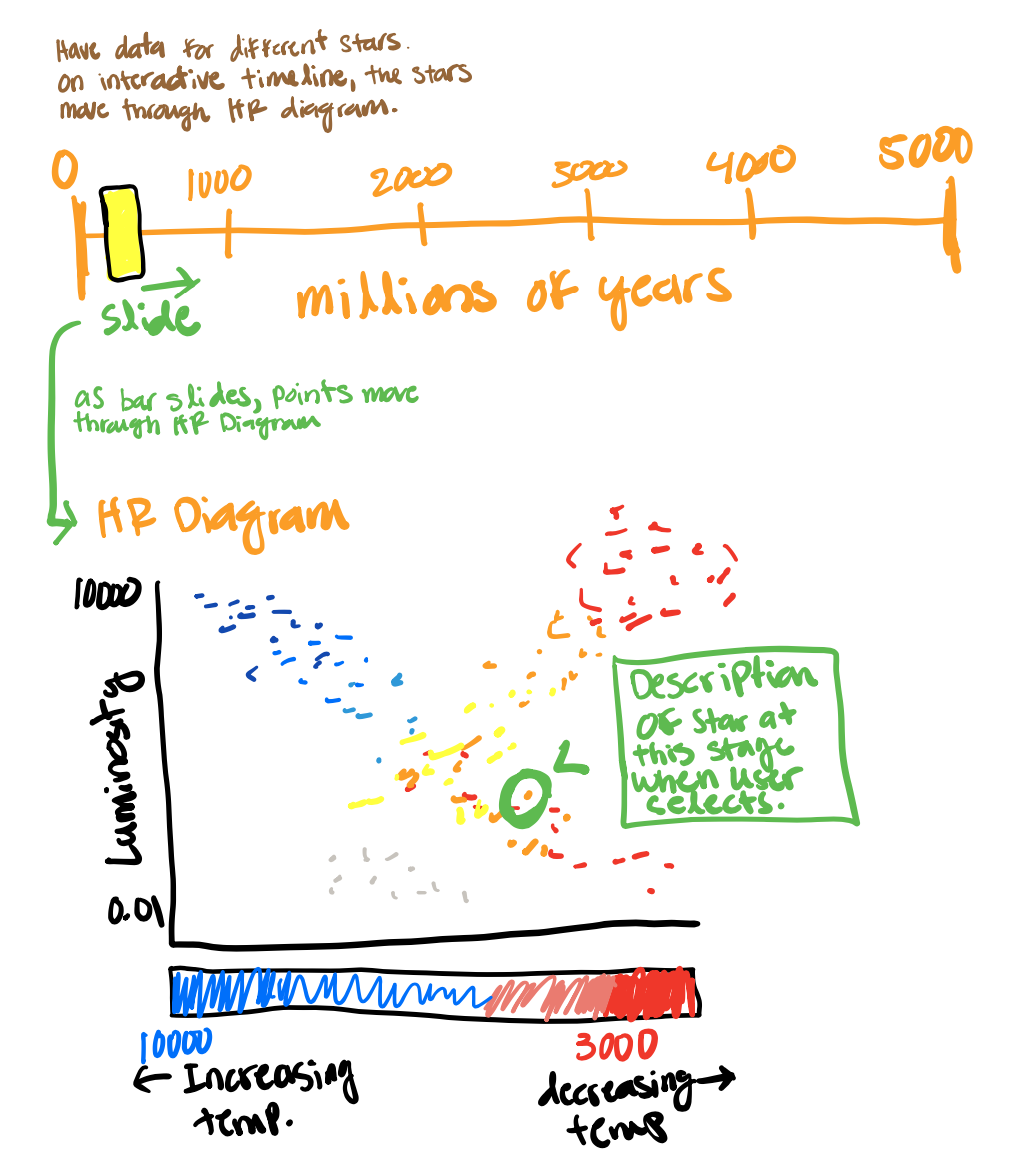 Have data for different stars.
on interactive timeline, the stars
move through HR diagram.
0 1000 2000 3000 4000 5000
slide
millions of years
as bar slides, points move
through HR Diagram
HR Diagram
10000
Luminosity
0.01
Description
of star at
this stage
when user
selects.
10000 3000
← Increasing
temp.
decreasing →
temp